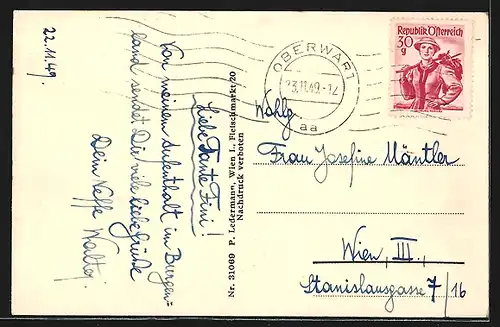 22.11.49.
Liebe Tante Fini!
Von meinem Aufenthalt in Burgen=
land sendet Dir viele liebe Grüße
Dein Neffe Walter.
Nr. 31069 P. Ledermann, Wien I., Fleischmarkt 20
Nachdruck verboten
OBERWART
23.11.49-17
aa
Republik Österreich
30
g
Wohlg
Frau Josefine Mäntler
Wien, III.,
Stanislausgasse 7/16